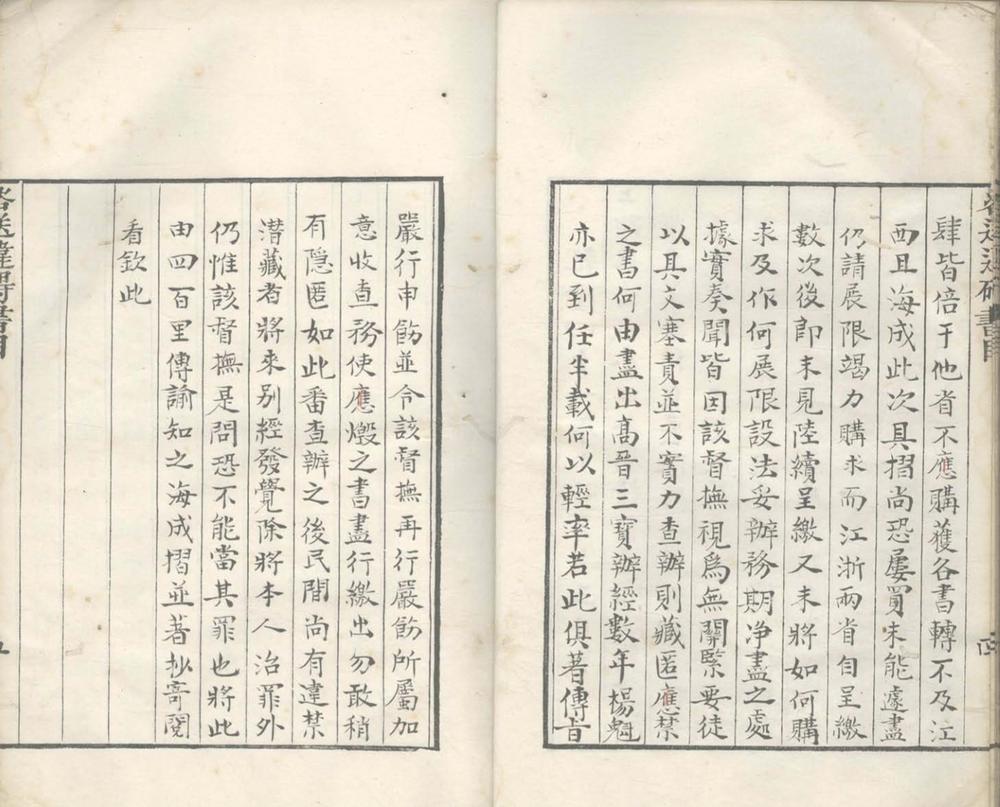 肆皆倍于他省不應購獲各書轉不及江
西且海成此次具摺尚恐屢買未能遽盡
仍請展限竭力購求而江浙兩省自呈繳
數次後即未見陸續呈繳又未將如何購
求及作何展限設法妥辦務期净盡之處
據實奏聞皆因該督撫視爲無關緊要徒
以具文塞責並不實力查辦則藏匿應禁
之書何由盡出高晉三寶辦經數年楊魁
亦已到任半載何以輕率若此俱著傳旨
四
嚴行申飭並令該督撫再行嚴飭所屬加
意收查務使應燬之書盡行繳出勿敢稍
有隱匿如此番查辦之後民間尚有違禁
潜藏者將來别經發覺除將本人治罪外
仍惟該督撫是問恐不能當其罪也將此
由四百里傳諭知之海成摺並著抄寄閱
看欽此
咨送違碍書目